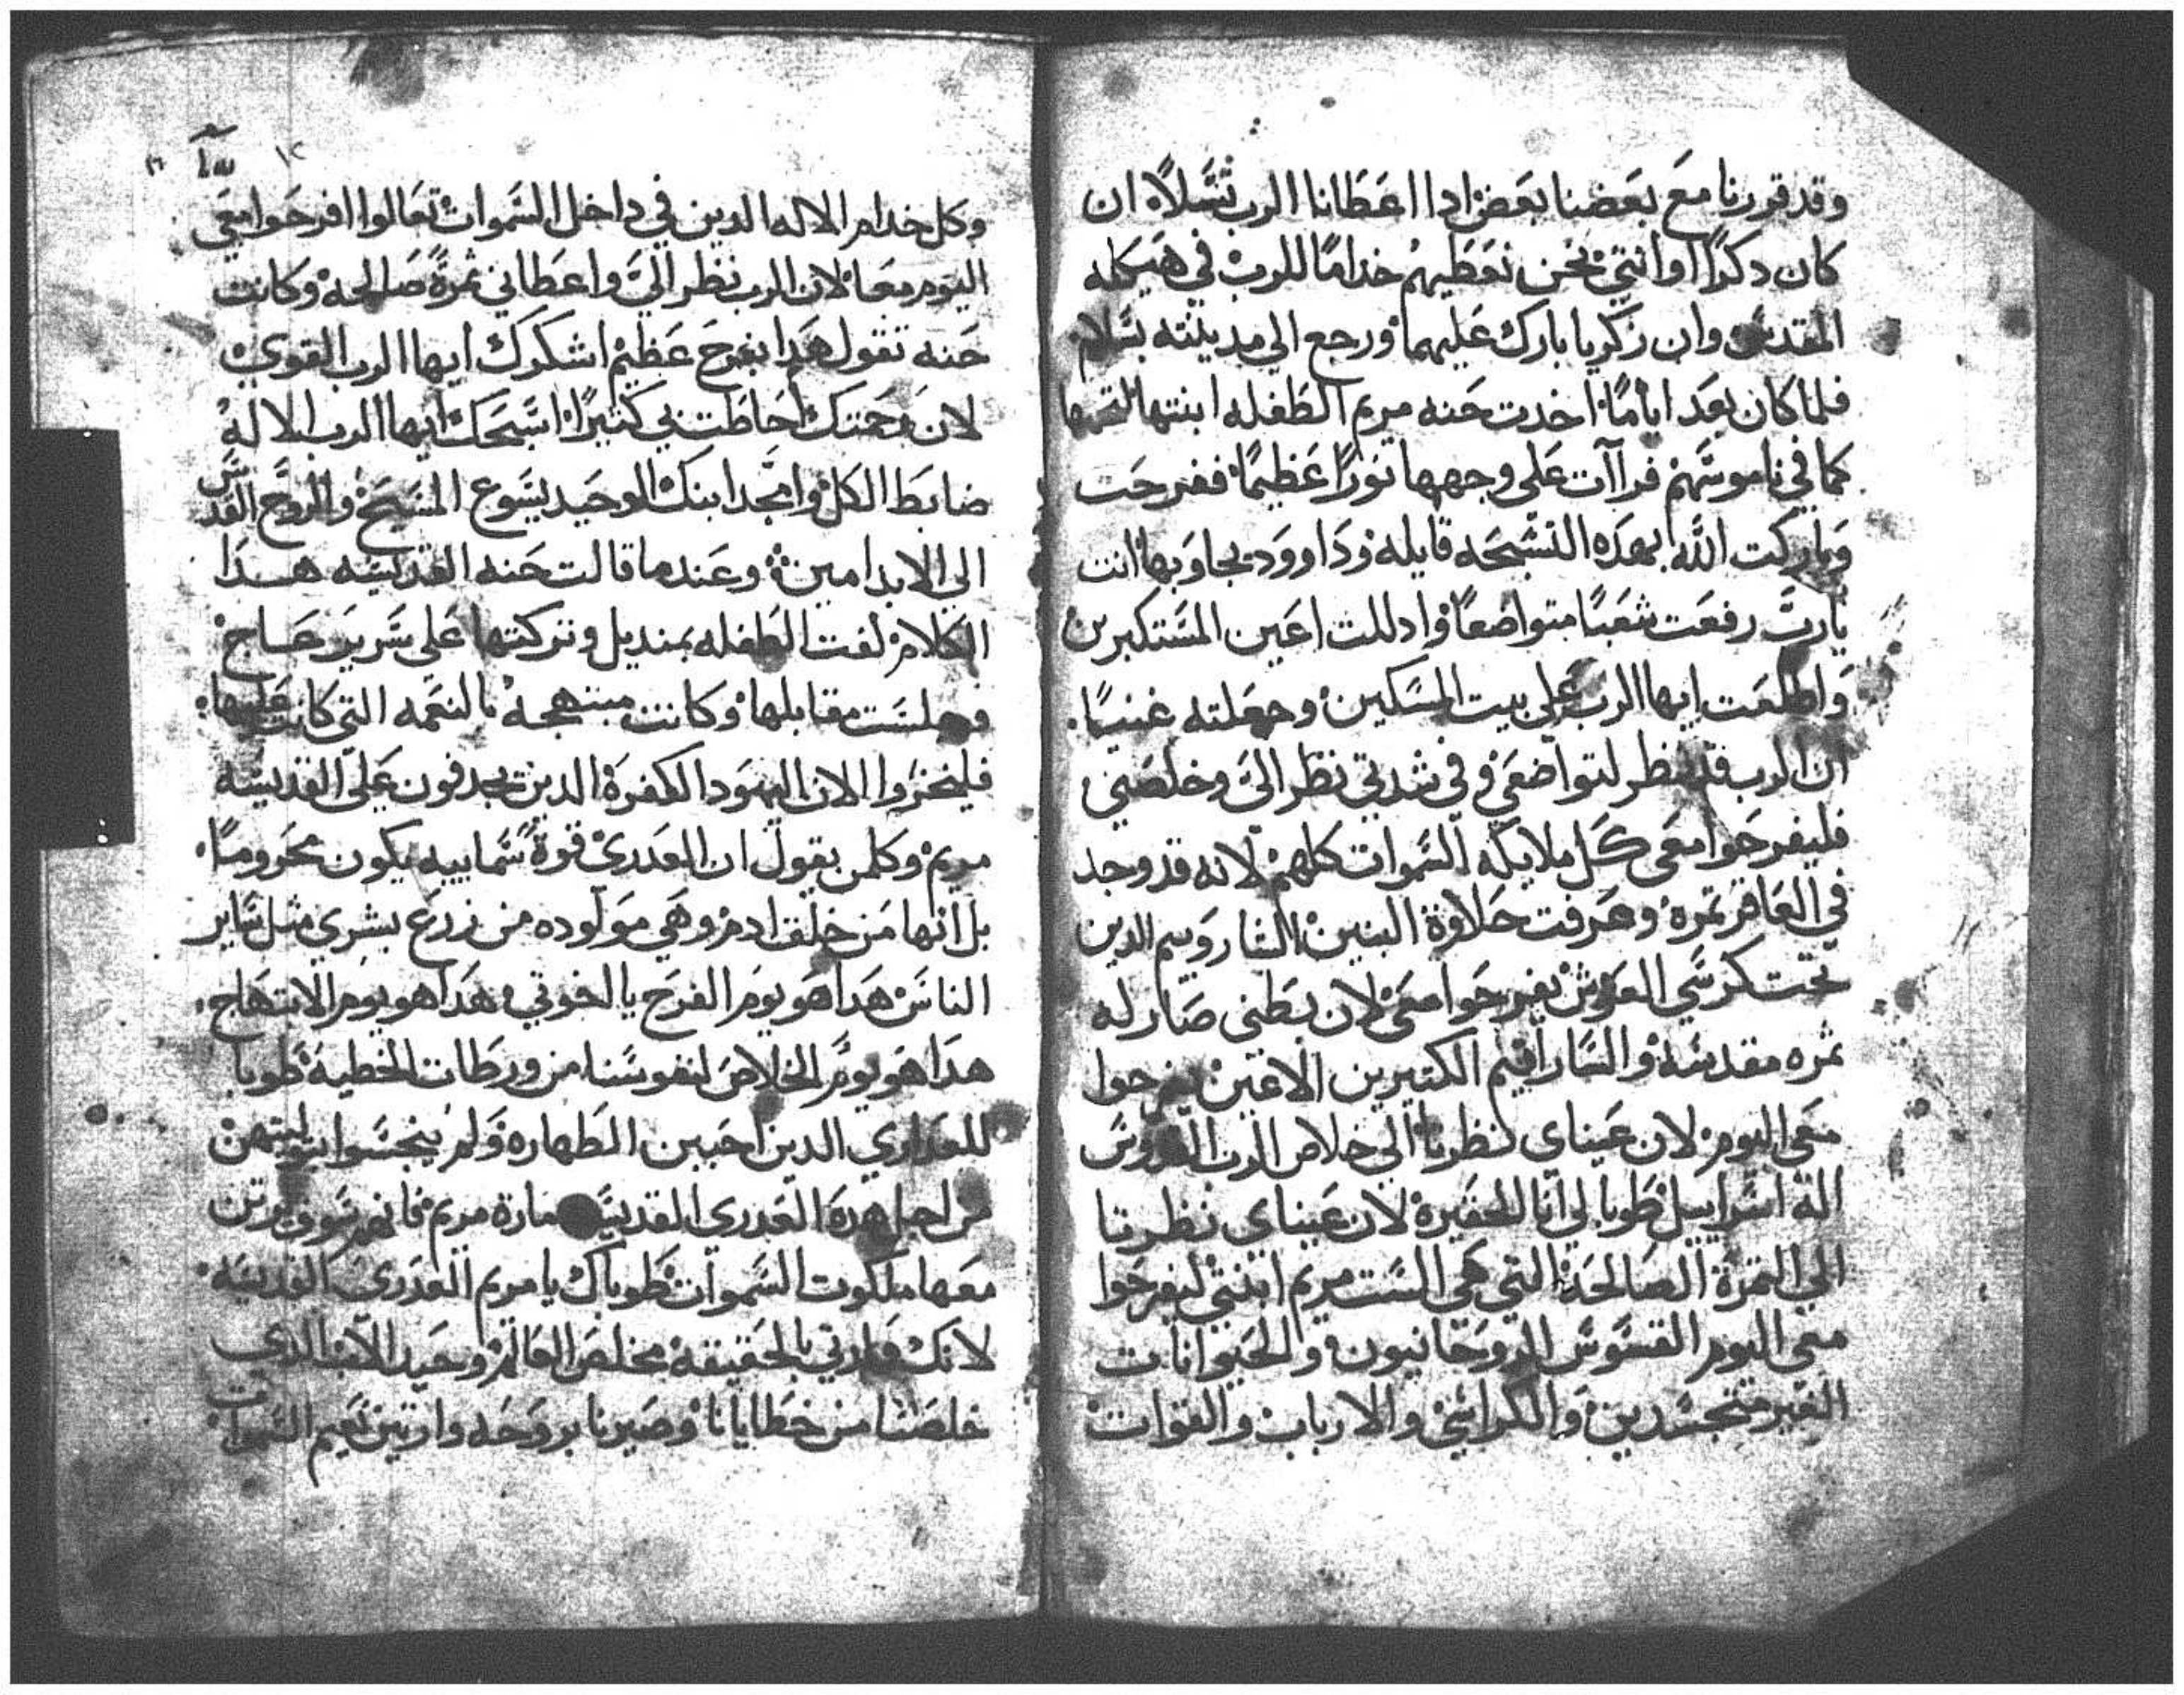 وقد قررنا مع بعضنا بعض ادا اعطانا الرب نسلاً ان
كان دكراً او انتي نحن نعطيهم خداماً للرب في هيكله
المقدس وان زكريا بارك عليهما ورجع الي مدينته بسلام
فلما كان بعد اياماً اخدت حنه مريم الطفله ابنتها
كما في ناموسهم فراآت علي وجهها نوراً عظيماً ففرحت
وباركت الله بهده التسبحه قايله وداوود يجاوبها انت
يارب رفعت شعباً متواضعاً وادللت اعين المستكبرين
واطلعت ايها الرب علي بيت المسكين وجعلته غنياً
ان الرب قد نظر لتواضعي وفي شدتي نظر الي وخلصني
فليفرحوا معي كل ملايكه السموات كلهم لانه قد وجد
في العاقر تمره وعرفت حلاوة البنين الشاروبيم الدين
تحت كرسي العرش يفرحوا معي لان بطني صار له
ثمره مقدسه والسارافيم الكتيرين الاعين يفرحوا
معي اليوم لان عيناي نظرتا الي خلاص الرب القدوس
اله اسراييل طوبا لي انا الحقيرة لان عيناي نظرتا
الي التمرة الصالحة التي هي الست مريم ابنتي ليفرحوا
معي اليوم القسوس الروحانيون والحيوانات
الغير متجسدين والكراسي والارباب والقوات
١٢
وكل خدام الاله الدين في داخل السموات تعالوا افرحوا معي
اليوم معا لان الرب نظر الي واعطاني ثمرةً صالحه وكانت
حنه تقول هدا بفرح عظيم اشكرك ايها الرب القوي
لان رحمتك احاطت بي كتيراً اسبحك ايها الرب الاله
ضابط الكل وامجد ابنك الوحيد يسوع المسيح والروح القدس
الي الابد امين وعند ما قالت حنه القديسه هدا
الكلام لفت الطفله بمنديل وتركتها علي سرير عاج
وجلست مقابلها وكانت مبتهجه بالنعمه التي كانت عليها
فليخزوا الان اليهود الكفرة الدين يجدفون علي القديسه
مريم وكلمن يقول ان العدري قوةً سماييه يكون محروماً
بل انها من خلق ادم وهي مولوده من زرع بشري مثل ساير
الناس هدا هو يوم الفرح يا اخوتي هدا هو يوم الابتهاج
هدا هو يوم الخلاص لنفوسنا من ورطات الخطية طوبا
للعداري الدين احبين الطهاره ولم ينجسوا بتوليتهن
من اجل هدة العدري القديسه مارة مريم فانهم سوف يرتن
معها ملكوت السموات طوباك يا مريم العدري القديسه
لانك ولدتي بالحقيقه مخلص العالم وحيد الاب الدي
خلصنا من خطايانا وصيرنا بروحه وارتين نعيم السموات